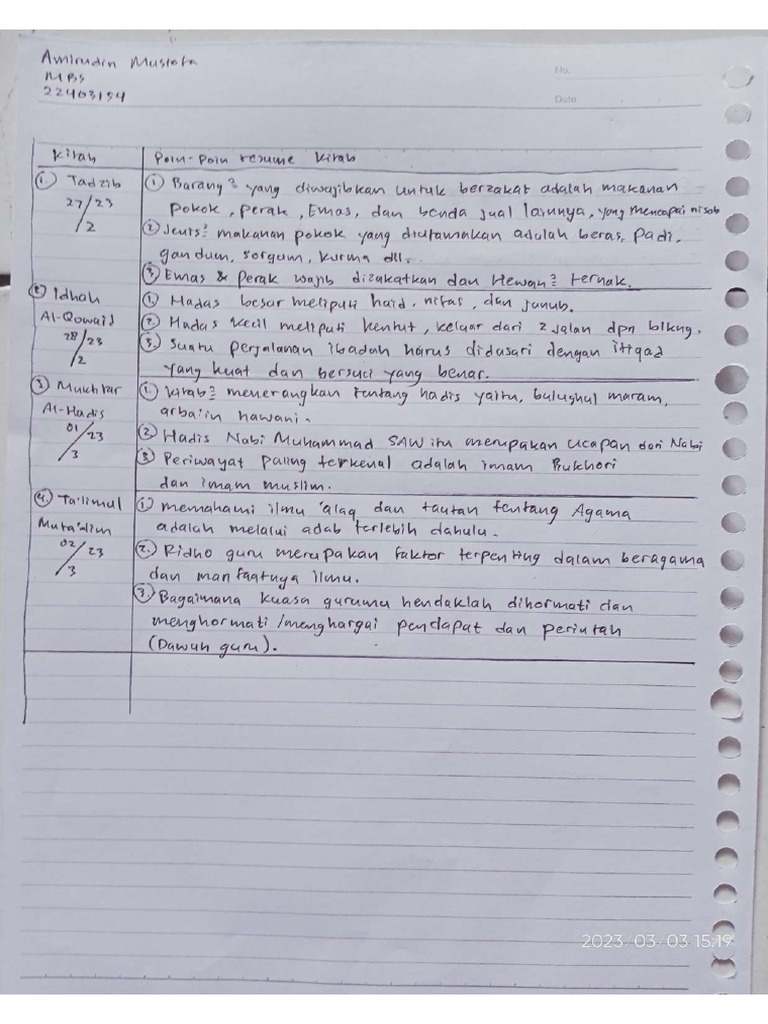 Amirudin Mustofa
MBS
22403154
No.
Date
Kitab
Poin-Poin resume Kitab
1. Tadzib
27/23
/2
① Barang² yang diwajibkan untuk berzakat adalah makanan
pokok, perak, Emas, dan benda jual lainnya, yang mencapai nisob
② Jenis² makanan pokok yang diutamakan adalah beras, padi,
gandum, sorgum, kurma dll.
③ Emas & perak wajib dizakatkan dan Hewan² ternak.
② Idhah
Al-Qowaid
28/23
/2
①. Hadas besar meliputi haid, nifas, dan junub.
②. Hadas kecil meliputi kentut, keluar dari 2 jalan dpn blkng.
③. Suatu perjalanan ibadah harus didasari dengan itiqad
yang kuat dan bersuci yang benar.
③ Mukhtar
Al-Hadis
01/23
/3
①. Kitab² menerangkan tentang hadis yaitu, bulughul maram,
arba'in nawani.
② Hadis Nabi Muhammad SAW itu merupakan ucapan dari Nabi
③ Periwayat paling terkenal adalah imam Bukhori
dan imam muslim.
④ Ta'limul
Muta'alim
02/23
/3
① memahami ilmu 'alaq dan tautan tentang Agama
adalah melalui adab terlebih dahulu.
②. Ridho guru merupakan faktor terpenting dalam beragama
dan manfaatnya ilmu.
③. Bagaimana kuasa gurumu hendaklah dihormati dan
menghormati /menghargai pendapat dan perintah
(Dawuh guru).
2023/03/03 15:19